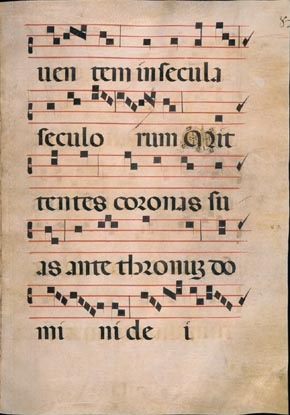 uen tem in secula
seculo rum Mit
tentes coronas su
as ante thronuȝ do
mi ni de i